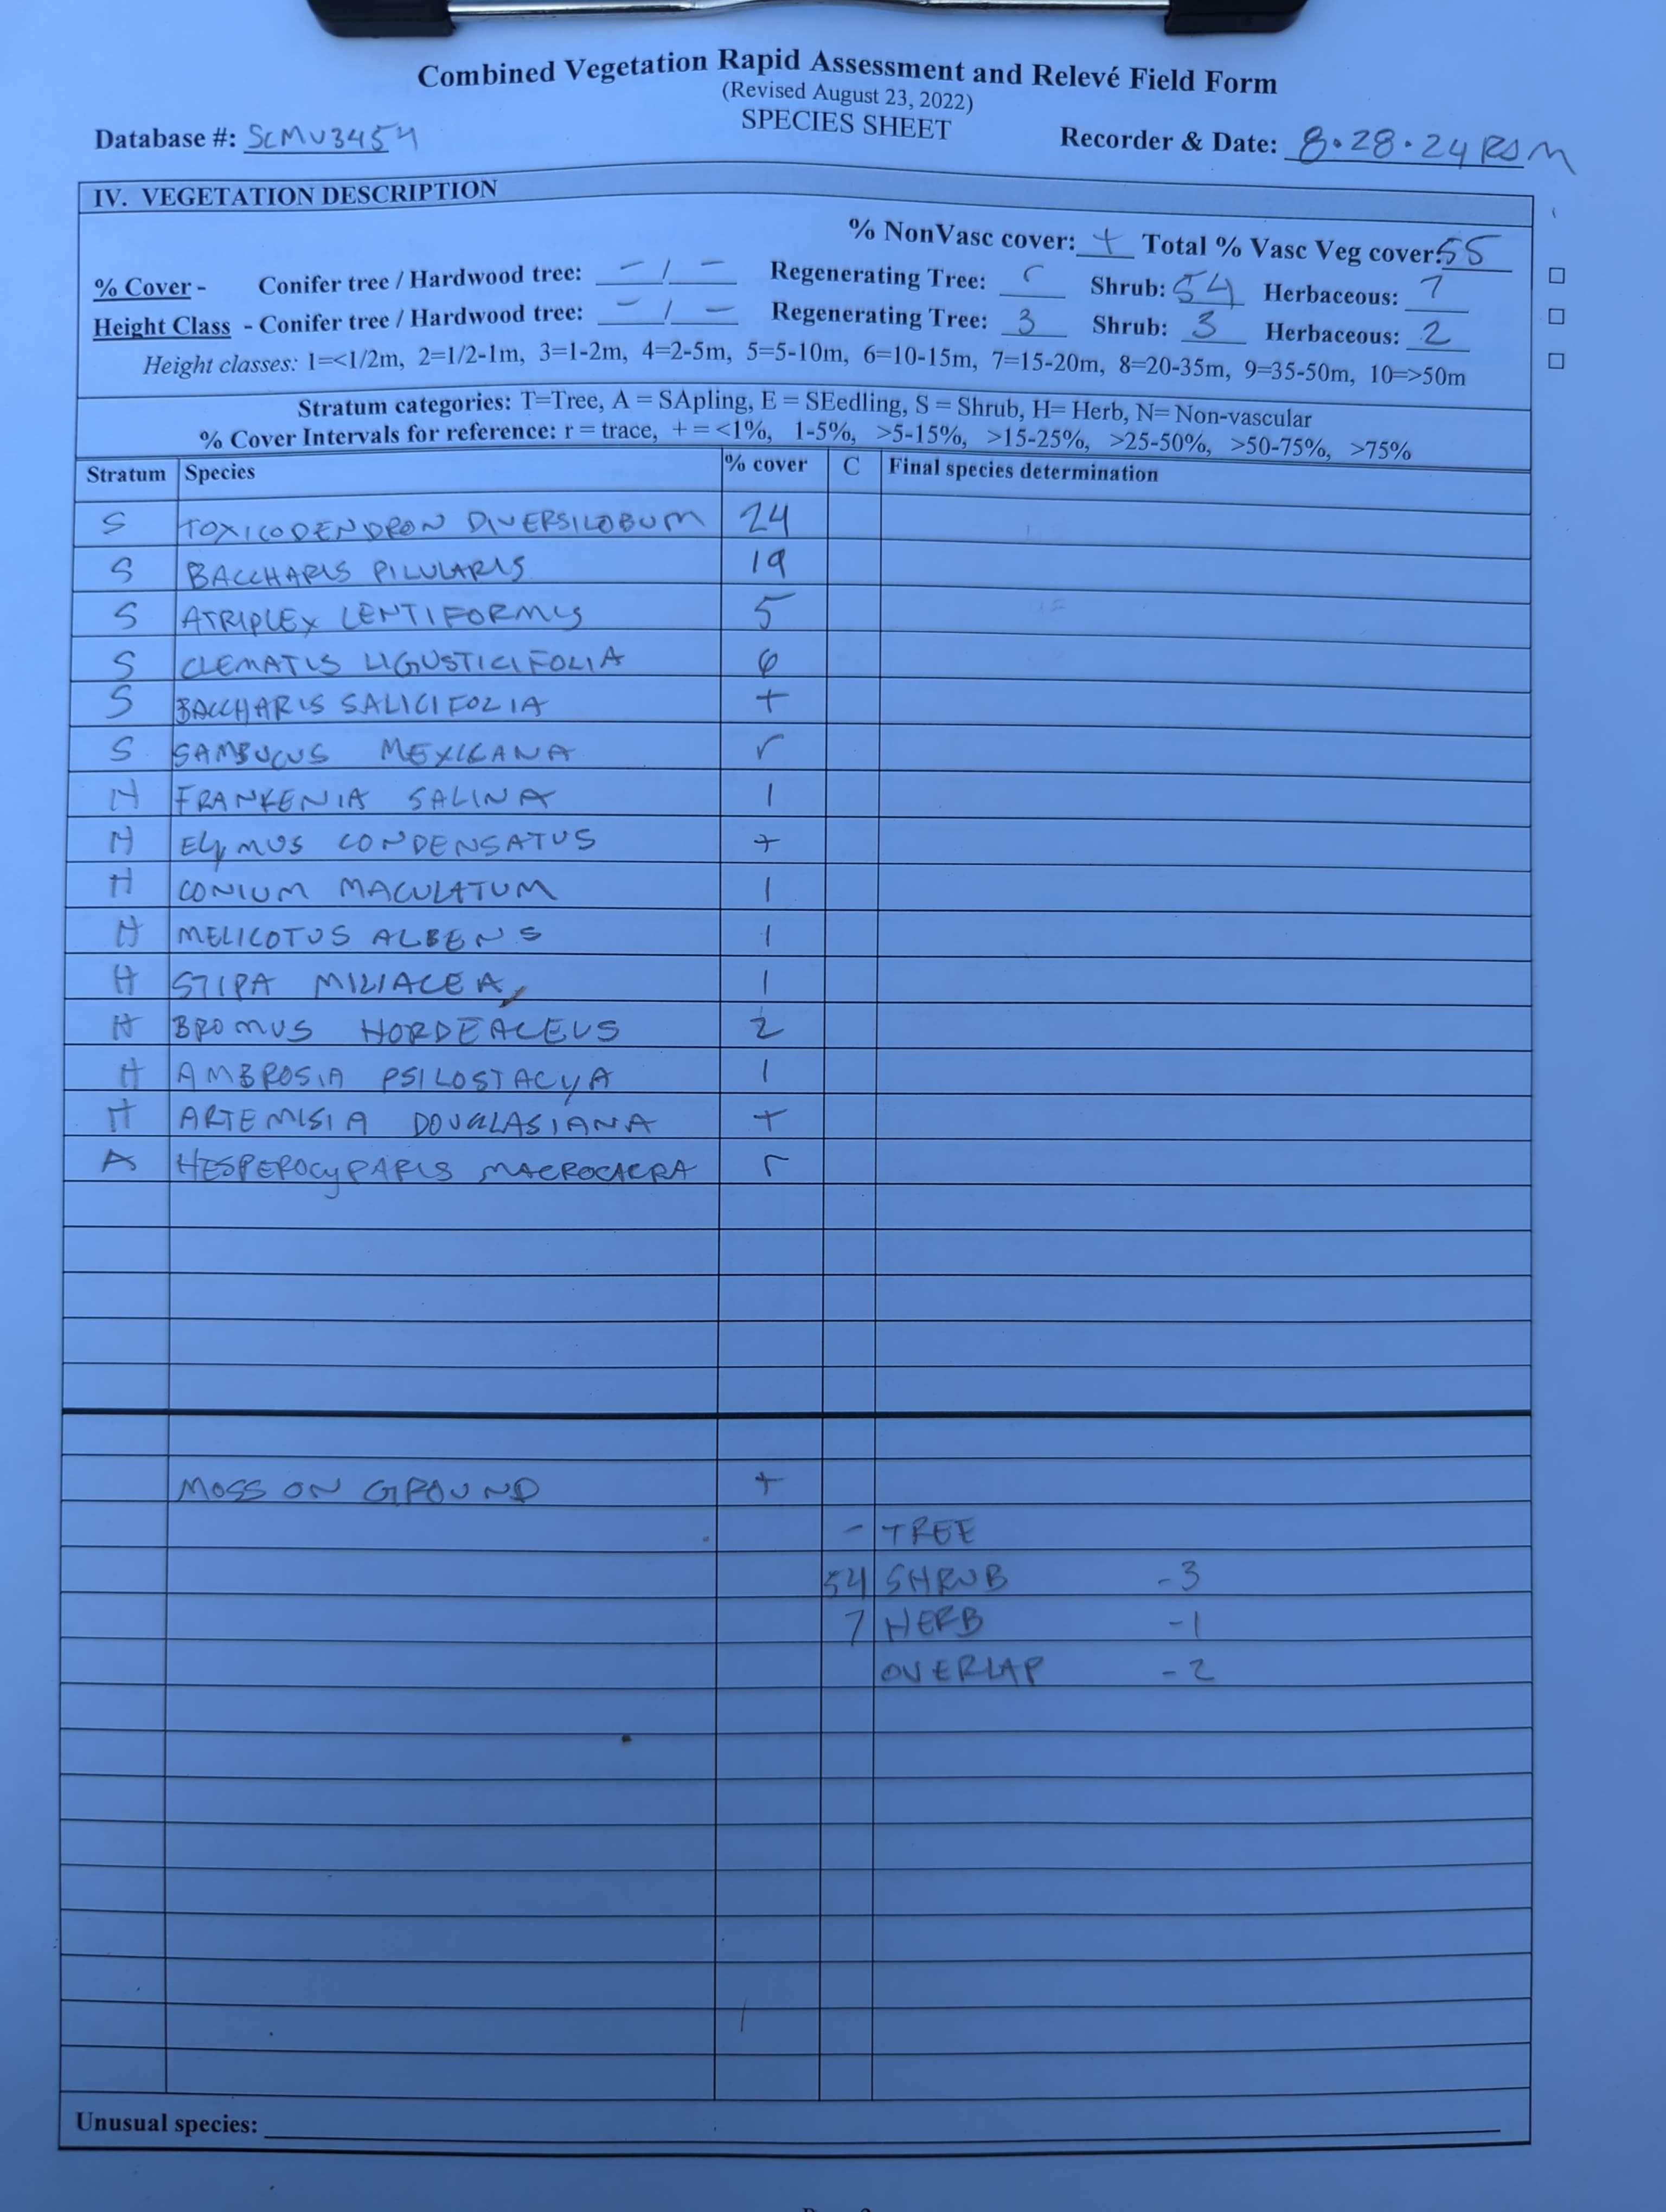 Combined Vegetation Rapid Assessment and Relevé Field Form
(Revised August 23, 2022)
SPECIES SHEET
Database #: SCMU3454
Recorder & Date: 8.28.24 RSM
IV. VEGETATION DESCRIPTION
% NonVasc cover: + Total % Vasc Veg cover: 55
% Cover - Conifer tree / Hardwood tree: - / - Regenerating Tree: r Shrub: 54 Herbaceous: 7
Height Class - Conifer tree / Hardwood tree: - / - Regenerating Tree: 3 Shrub: 3 Herbaceous: 2
Height classes: 1=<1/2m, 2=1/2-1m, 3=1-2m, 4=2-5m, 5=5-10m, 6=10-15m, 7=15-20m, 8=20-35m, 9=35-50m, 10=>50m
Stratum categories: T=Tree, A = SApling, E = SEedling, S = Shrub, H= Herb, N= Non-vascular
% Cover Intervals for reference: r = trace, + = <1%, 1-5%, >5-15%, >15-25%, >25-50%, >50-75%, >75%
Stratum Species % cover C Final species determination
S TOXICODENDRON DIVERSILOBUM 24
S BACCHARIS PILULARIS 19
S ATRIPLEX LENTIFORMIS 5
S CLEMATIS LIGUSTICIFOLIA 6
S BACCHARIS SALICIFOLIA +
S SAMBUCUS MEXICANA r
H FRANKENIA SALINA 1
H ELYMUS CONDENSATUS +
H CONIUM MACULATUM 1
H MELICOTUS ALBENS 1
H STIPA MILIACEA 1
H BROMUS HORDEACEUS 2
H AMBROSIA PSILOSTACYA 1
H ARTEMISIA DOUGLASIANA +
A HESPEROCYPARIS MACROCACRA r
MOSS ON GROUND +
- TREE
54 SHRUB -3
7 HERB -1
OVERLAP -2
Unusual species: